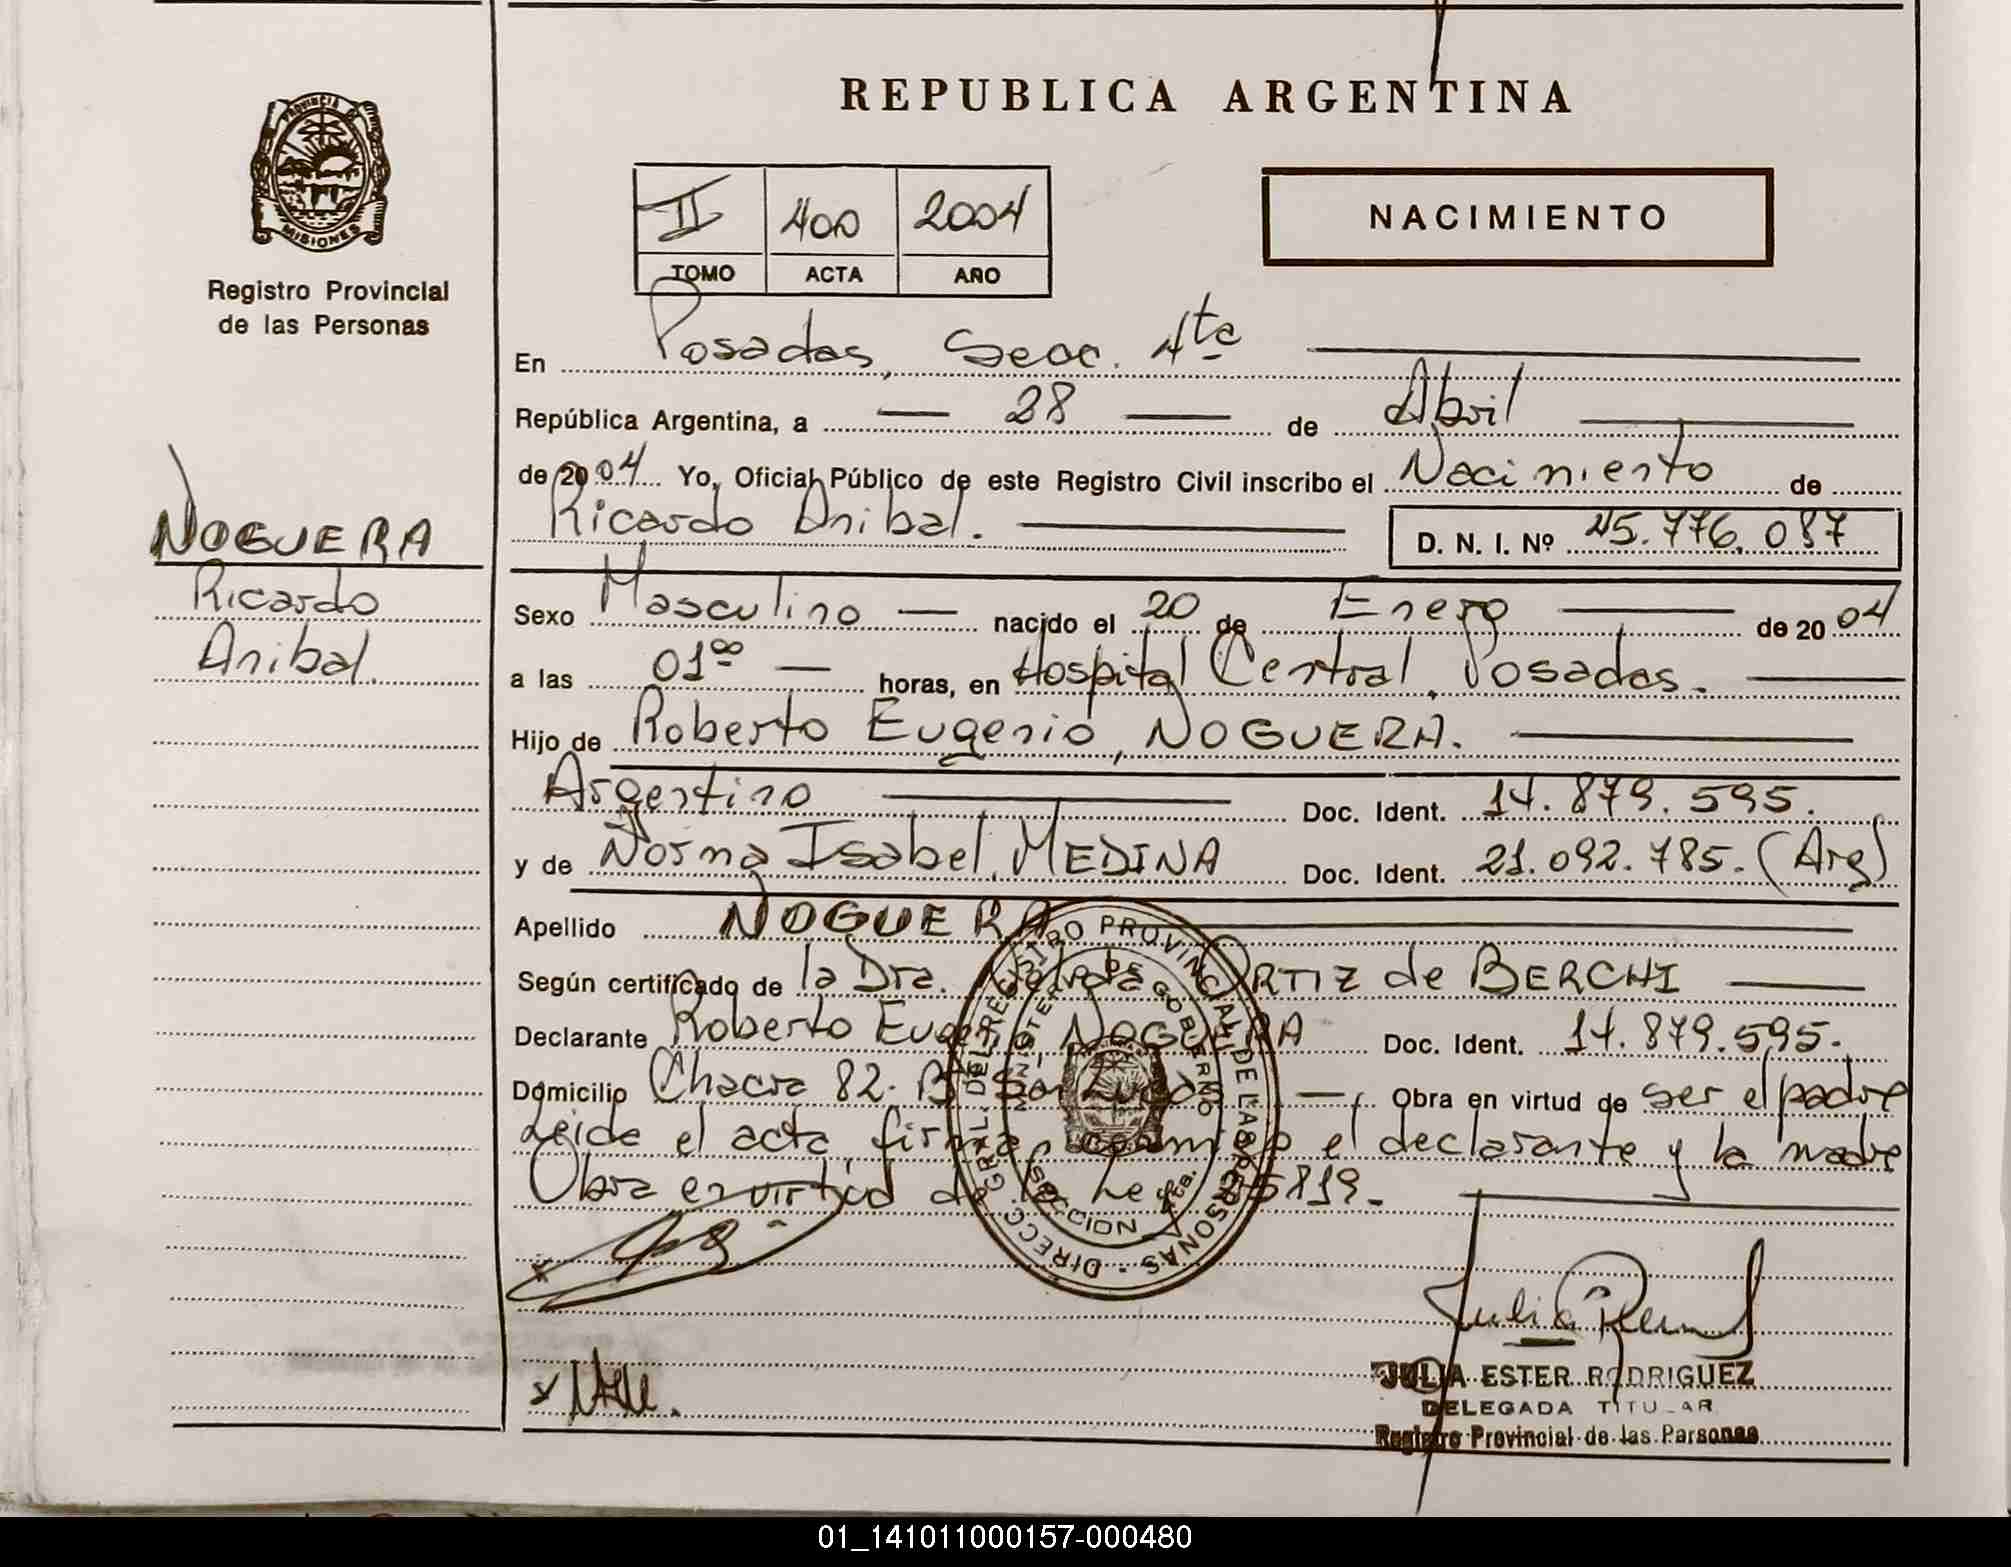 REPUBLICA ARGENTINA
PROVINCIA DE
MISIONES
Registro Provincial
de las Personas
II 400 2004
TOMO ACTA AÑO
NACIMIENTO
En Posadas, Secc. 4ta
República Argentina, a 28 de Abril
de 2004 Yo, Oficial Público de este Registro Civil inscribo el Nacimiento de
Ricardo Anibal. D. N. I. Nº 45.776.087
NOGUERA
Ricardo
Anibal.
Sexo Masculino nacido el 20 de Enero de 2004
a las 01⁰⁰ horas, en Hospital Central, Posadas.
Hijo de Roberto Eugenio, NOGUERA.
Argentino Doc. Ident. 14.879.595.
y de Norma Isabel, MEDINA Doc. Ident. 21.092.785. (Arg)
Apellido NOGUERA
Según certificado de la Dra. ORTIZ de BERCHI
Declarante Roberto Eugenio NOGUERA Doc. Ident. 14.879.595.
Domicilio Chacra 82. Bº San Lucas Obra en virtud de ser el padre
Leida el acta, firman conmigo el declarante y la madre
Obra en virtud de la Ley 25819.
DIRECC. GRAL. DEL REGISTRO PROVINCIAL DE LAS PERSONAS
MINISTERIO DE GOBIERNO
SECCION 4ta.
JULIA ESTER RODRIGUEZ
DELEGADA TITULAR
Registro Provincial de las Personas
01_141011000157-000480